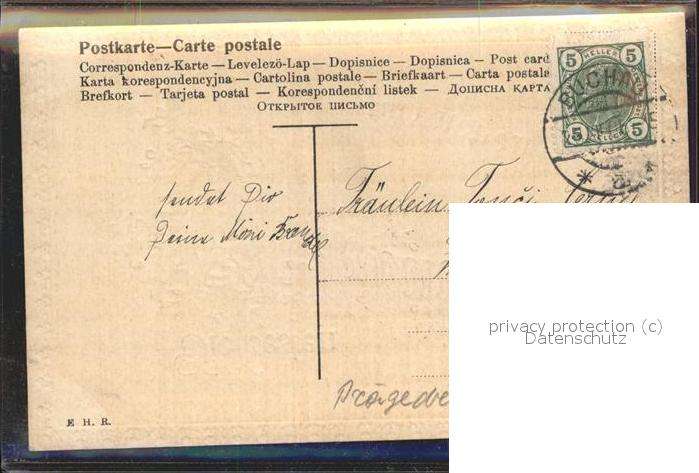 Postkarte—Carte postale
Correspondenz-Karte — Levelezö-Lap — Dopisnice — Dopisnica — Post card
Karta korespondencyjna — Cartolina postale — Briefkaart — Carta postala
Brefkort — Tarjeta postal — Korespondenční listek — Дописна карта
Открытое письмо
5 HELLER 5
5 HELLER 5
BUCHAU
sendet Dir
Deine Mizi
Fräulein
privacy protection (c)
Datenschutz
E H. R.